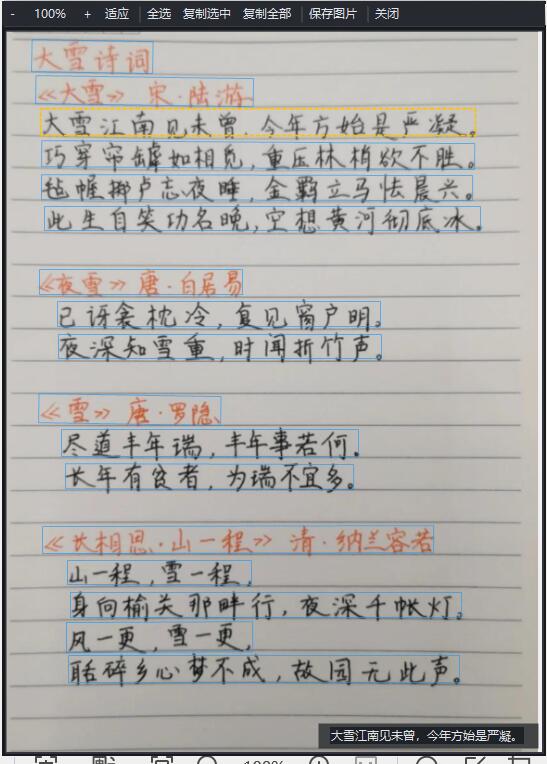 - 100% + 适应 全选 复制选中 复制全部 保存图片 关闭
大雪诗词
《大雪》 宋·陆游
大雪江南见未曾，今年方始是严凝。
巧穿帘罅如相觅，重压林梢欲不胜。
毡幄掷卢忘夜睡，金羁立马怯晨兴。
此生自笑功名晚，空想黄河彻底冰。
《夜雪》 唐·白居易
已讶衾枕冷，复见窗户明。
夜深知雪重，时闻折竹声。
《雪》 唐·罗隐
尽道丰年瑞，丰年事若何。
长年有贫者，为瑞不宜多。
《长相思·山一程》 清·纳兰容若
山一程，雪一程，
身向榆关那畔行，夜深千帐灯。
风一更，雪一更，
聒碎乡心梦不成，故园无此声。
大雪江南见未曾，今年方始是严凝。